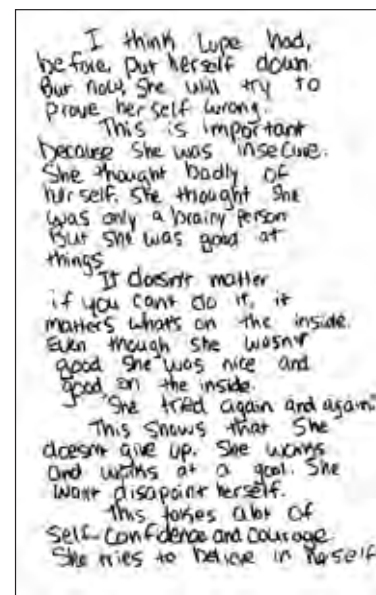 I think Lupe had,
before, put herself down.
But now, she will try to
prove her self wrong.
This is important
because she was insecure.
She thought badly of
her self. She thought she
was only a brainy person
But she was good at
things
It doesn't matter
if you cant do it, it
matters whats on the inside.
Even though she wasn't
good she was nice and
good on the inside.
"She tried again and again."
This shows that she
doesn't give up. She works
and works at a goal. She
wont disapoint herself.
This takes alot of
self-confidence and courage
She tries to believe in herself